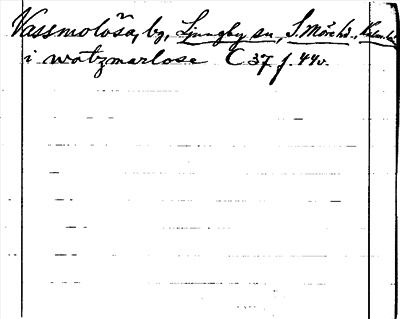 Vassmolösa, by, Ljungby sn, S. Möre hd., Kalm. län
i watzmarlose C 37 f. 44v.